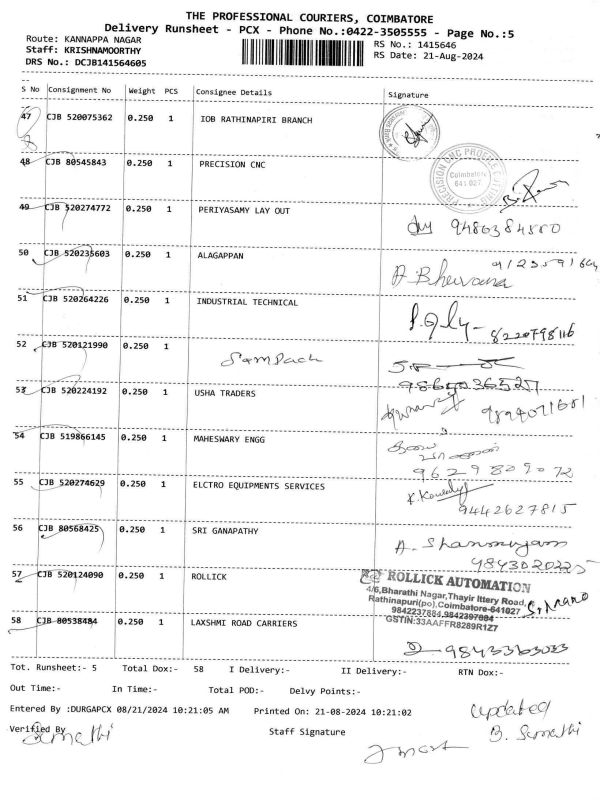 THE PROFESSIONAL COURIERS, COIMBATORE
Delivery Runsheet - PCX - Phone No.:0422-3505555 - Page No.:5
Route: KANNAPPA NAGAR
Staff: KRISHNAMOORTHY
DRS No.: DCJB141564605
RS No.: 1415646
RS Date: 21-Aug-2024
S No Consignment No Weight PCS Consignee Details Signature
47 CJB 520075362 0.250 1 IOB RATHINAPIRI BRANCH
48 CJB 80545843 0.250 1 PRECISION CNC
PRECISION CNC PROFILE CUTTING
Coimbatore
641 027
49 CJB 520274772 0.250 1 PERIYASAMY LAY OUT
9486384880
50 CJB 520235603 0.250 1 ALAGAPPAN
A. Bhuvana
51 CJB 520264226 0.250 1 INDUSTRIAL TECHNICAL
8220798116
52 CJB 520121990 0.250 1 Sampach
9865036527
53 CJB 520224192 0.250 1 USHA TRADERS
9894071681
54 CJB 519866145 0.250 1 MAHESWARY ENGG
9629809072
55 CJB 520274629 0.250 1 ELCTRO EQUIPMENTS SERVICES
9442627815
56 CJB 80568425 0.250 1 SRI GANAPATHY
A. Shanmugam
9843020225
57 CJB 520124090 0.250 1 ROLLICK
ROLLICK AUTOMATION
4/6,Bharathi Nagar,Thayir Ittery Road,
Rathinapuri(po),Coimbatore-641027
9842237884,9842397884
GSTIN:33AAFFR8289R1Z7
58 CJB 80538484 0.250 1 LAXSHMI ROAD CARRIERS
9843363033
Tot. Runsheet:- 5 Total Dox:- 58 I Delivery:- II Delivery:- RTN Dox:-
Out Time:- In Time:- Total POD:- Delvy Points:-
Entered By :DURGAPCX 08/21/2024 10:21:05 AM Printed On: 21-08-2024 10:21:02
Updated
Verified By Staff Signature
Sumathi
B. Sumathi